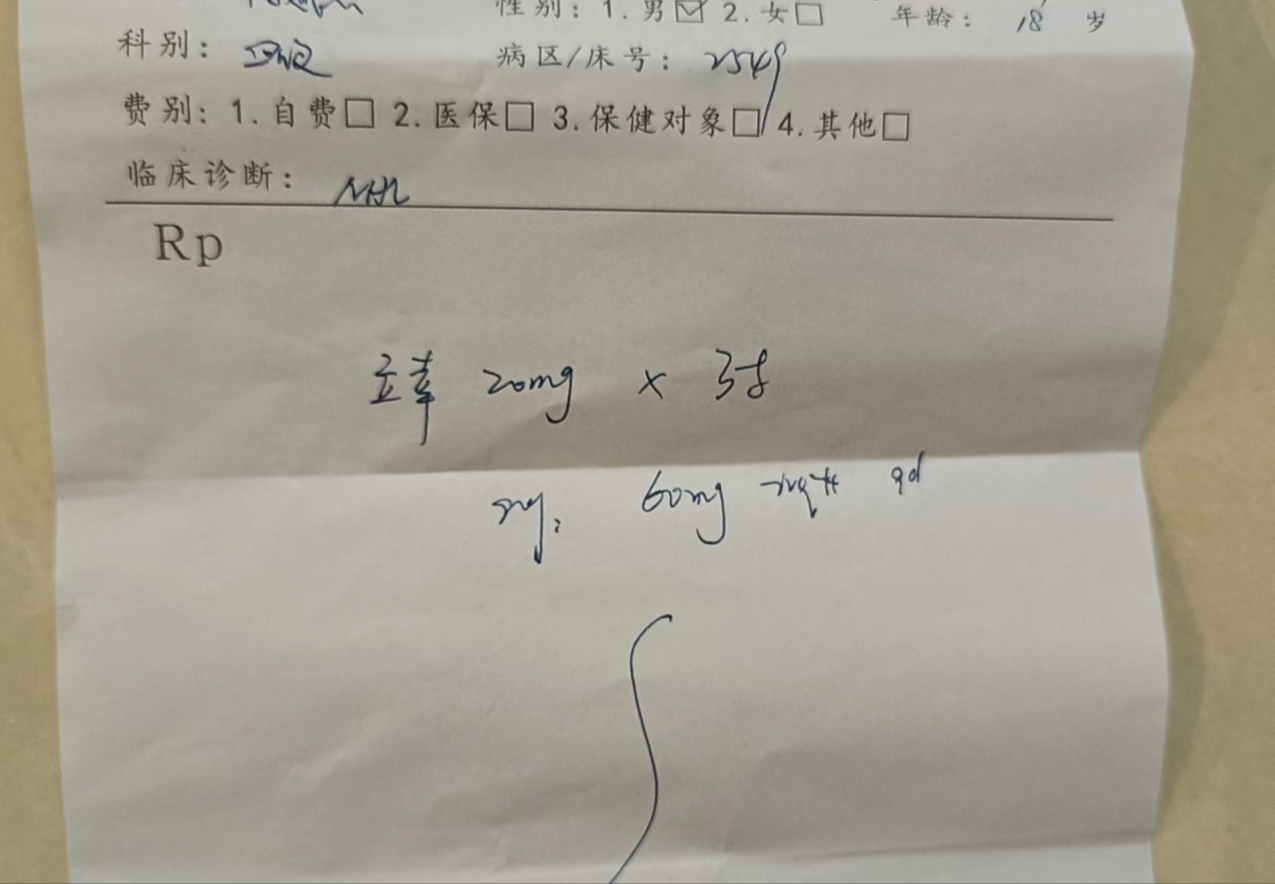 性别: 1. 男☑ 2. 女□ 年龄: 18 岁
科别: 病区/床号: 2549
费别: 1. 自费□ 2. 医保□ 3. 保健对象□ 4. 其他□
临床诊断: NHL
Rp
20mg × 3
60mg qd